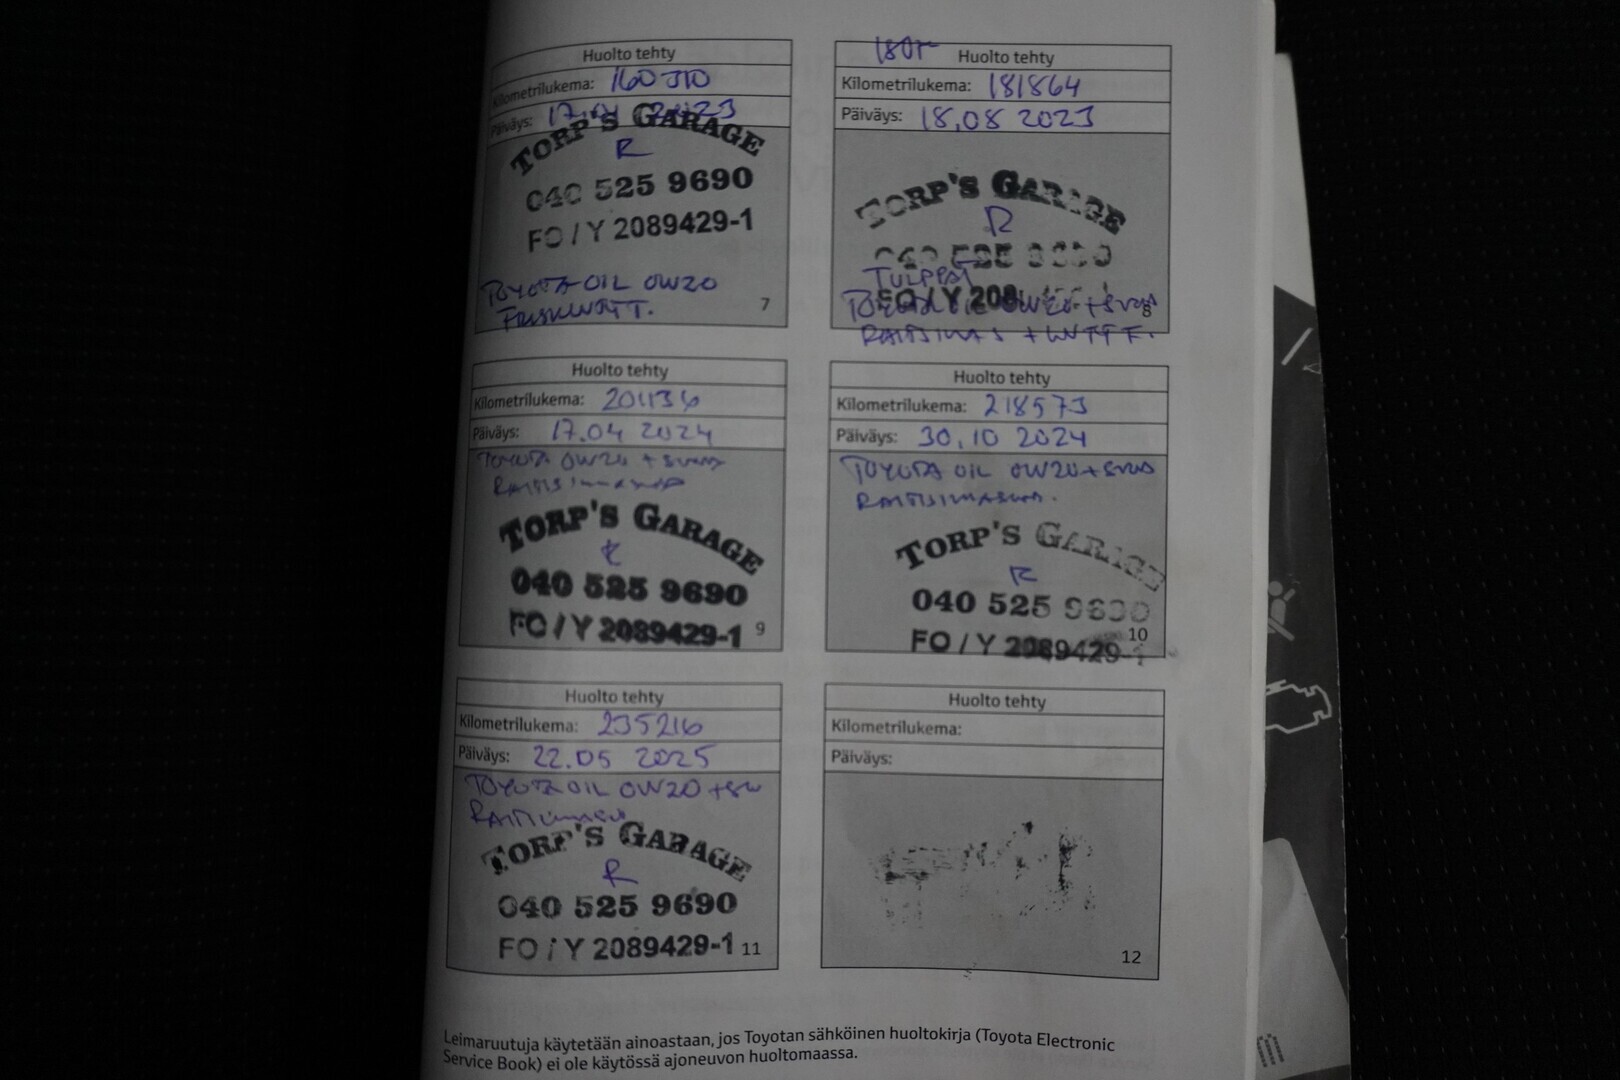 Huolto tehty
Kilometrilukema: 160
Päiväys: 17. 2023
TORP'S GARAGE
R
040 525 9690
FO / Y 2089429-1
TOYOTA OIL 0W20
7
180T
Huolto tehty
Kilometrilukema: 181864
Päiväys: 18.08 2023
TORP'S GARAGE
R
040 525
TULPPAT
FO / Y 208
8
Huolto tehty
Kilometrilukema: 201136
Päiväys: 17.04 2024
TOYOTA 0W20 +
TORP'S GARAGE
R
040 525 9690
FO / Y 2089429-1
9
Huolto tehty
Kilometrilukema: 218573
Päiväys: 30.10 2024
TOYOTA OIL 0W20 +
TORP'S GARAGE
R
040 525 9690
FO / Y 2089429-1
10
Huolto tehty
Kilometrilukema: 235216
Päiväys: 22.05 2025
TOYOTA OIL 0W20 +
TORP'S GARAGE
R
040 525 9690
FO / Y 2089429-1
11
Huolto tehty
Kilometrilukema:
Päiväys:
12
Leimaruutuja käytetään ainoastaan, jos Toyotan sähköinen huoltokirja (Toyota Electronic
Service Book) ei ole käytössä ajoneuvon huoltomaassa.